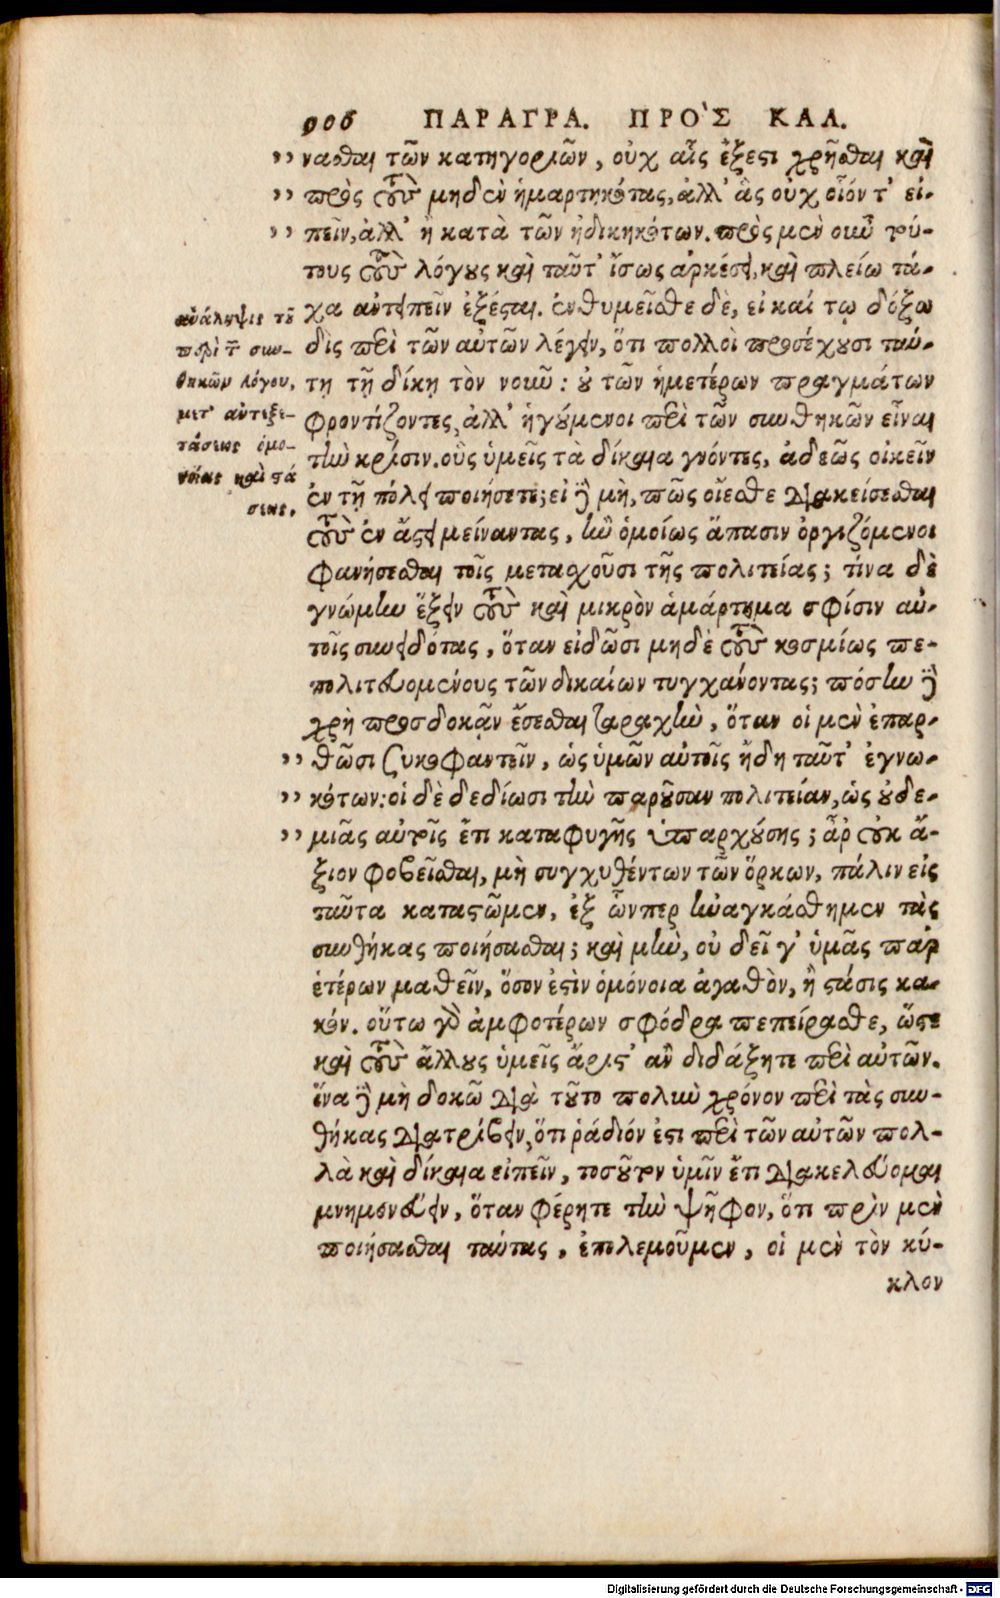 906 ΠΑΡΑΓΡΑ. ΠΡΟ`Σ ΚΑΛ.
,, νασθαι τῶν κατηγοριῶν, οὐχ αἷς ἔξεστι χρῆσθαι καὶ
,, πρὸς τοὺς μηδὲν ἡμαρτηκότας, ἀλλ' ἃς οὐχ οἷόν τ' εἰ-
,, πεῖν, ἀλλ' ἢ κατὰ τῶν ἠδικηκότων. πρὸς μὲν οὖν τού-
τους τοὺς λόγους καὶ ταῦτ' ἴσως ἀρκέσει, καὶ πλείω τά-
χα ἀντειπεῖν ἐξέσται. ἐνθυμεῖσθε δὲ, εἰ καί τῳ δόξω
δὶς περὶ τῶν αὐτῶν λέγειν, ὅτι πολλοὶ προσέχουσι ταύ-
τῃ τῇ δίκῃ τὸν νοῦν: οὐ τῶν ἡμετέρων πραγμάτων
φροντίζοντες, ἀλλ' ἡγούμενοι περὶ τῶν συνθηκῶν εἶναι
τὴν κρίσιν. οὓς ὑμεῖς τὰ δίκαια γνόντες, ἀδεῶς οἰκεῖν
ἐν τῇ πόλει ποιήσετε; εἰ δὲ μὴ, πῶς οἴεσθε διακείσεσθαι
τοὺς ἐν ἄστει μείναντας, ἢν ὁμοίως ἅπασιν ὀργιζόμενοι
φανήσεσθαι τοῖς μετασχοῦσι τῆς πολιτείας; τίνα δὲ
γνώμην ἕξειν τοὺς καὶ μικρὸν ἁμάρτημα σφίσιν αὐ-
τοῖς συνειδότας, ὅταν εἰδῶσι μηδὲ τοὺς κοσμίως πε-
πολιτευομένους τῶν δικαίων τυγχάνοντας; πόσην δὲ
χρὴ προσδοκᾷν ἔσεσθαι ταραχὴν, ὅταν οἱ μὲν ἐπαρ-
,, θῶσι συκοφαντεῖν, ὡς ὑμῶν αὐτοῖς ἤδη ταῦτ' ἐγνω-
,, κότων: οἱ δὲ δεδίωσι τὴν παροῦσαν πολιτείαν, ὡς οὐδε-
,, μιᾶς αὐτοῖς ἔτι καταφυγῆς ὑπαρχούσης; ἆρ' οὐκ ἄ-
ξιον φοβεῖσθαι, μὴ συγχυθέντων τῶν ὅρκων, πάλιν εἰς
ταῦτα καταστῶμεν, ἐξ ὧνπερ ἠναγκάσθημεν τὰς
συνθήκας ποιήσασθαι; καὶ μὴν, οὐ δεῖ γ' ὑμᾶς παρ'
ἑτέρων μαθεῖν, ὅσον ἐστὶν ὁμόνοια ἀγαθὸν, ἢ στάσις κα-
κόν. οὕτω γὰρ ἀμφοτέρων σφόδρα πεπείρασθε, ὥστε
καὶ τοὺς ἄλλους ὑμεῖς ἄριστ' ἂν διδάξητε περὶ αὐτῶν.
ἵνα δὲ μὴ δοκῶ διὰ τοῦτο πολὺν χρόνον περὶ τὰς συν-
θήκας διατρίβειν, ὅτι ῥάδιόν ἐστι περὶ τῶν αὐτῶν πολ-
λὰ καὶ δίκαια εἰπεῖν, τοσοῦτον ὑμῖν ἔτι διακελεύομαι
μνημονεύειν, ὅταν φέρητε τὴν ψῆφον, ὅτι πρὶν μὲν
ποιήσασθαι ταύτας, ἐπολεμοῦμεν, οἱ μὲν τὸν κύ-
κλον
ἀνάληψις τοῦ
περὶ τῶν συν-
θηκῶν λόγου,
μετ' ἀντεξε-
τάσεως ὁμο-
νοίας καὶ στά
σεως.
Digitalisierung gefördert durch die Deutsche Forschungsgemeinschaft - DFG